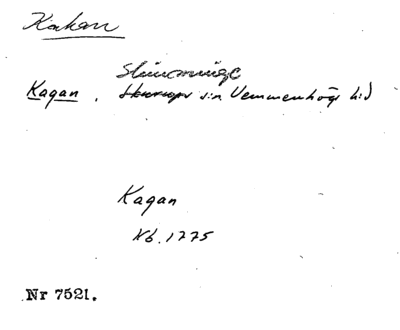 Kakan
Slimminge
Kagan. Skurups sn Vemmenhögs hd
Kagan
Kb. 1775
Nr 7521.